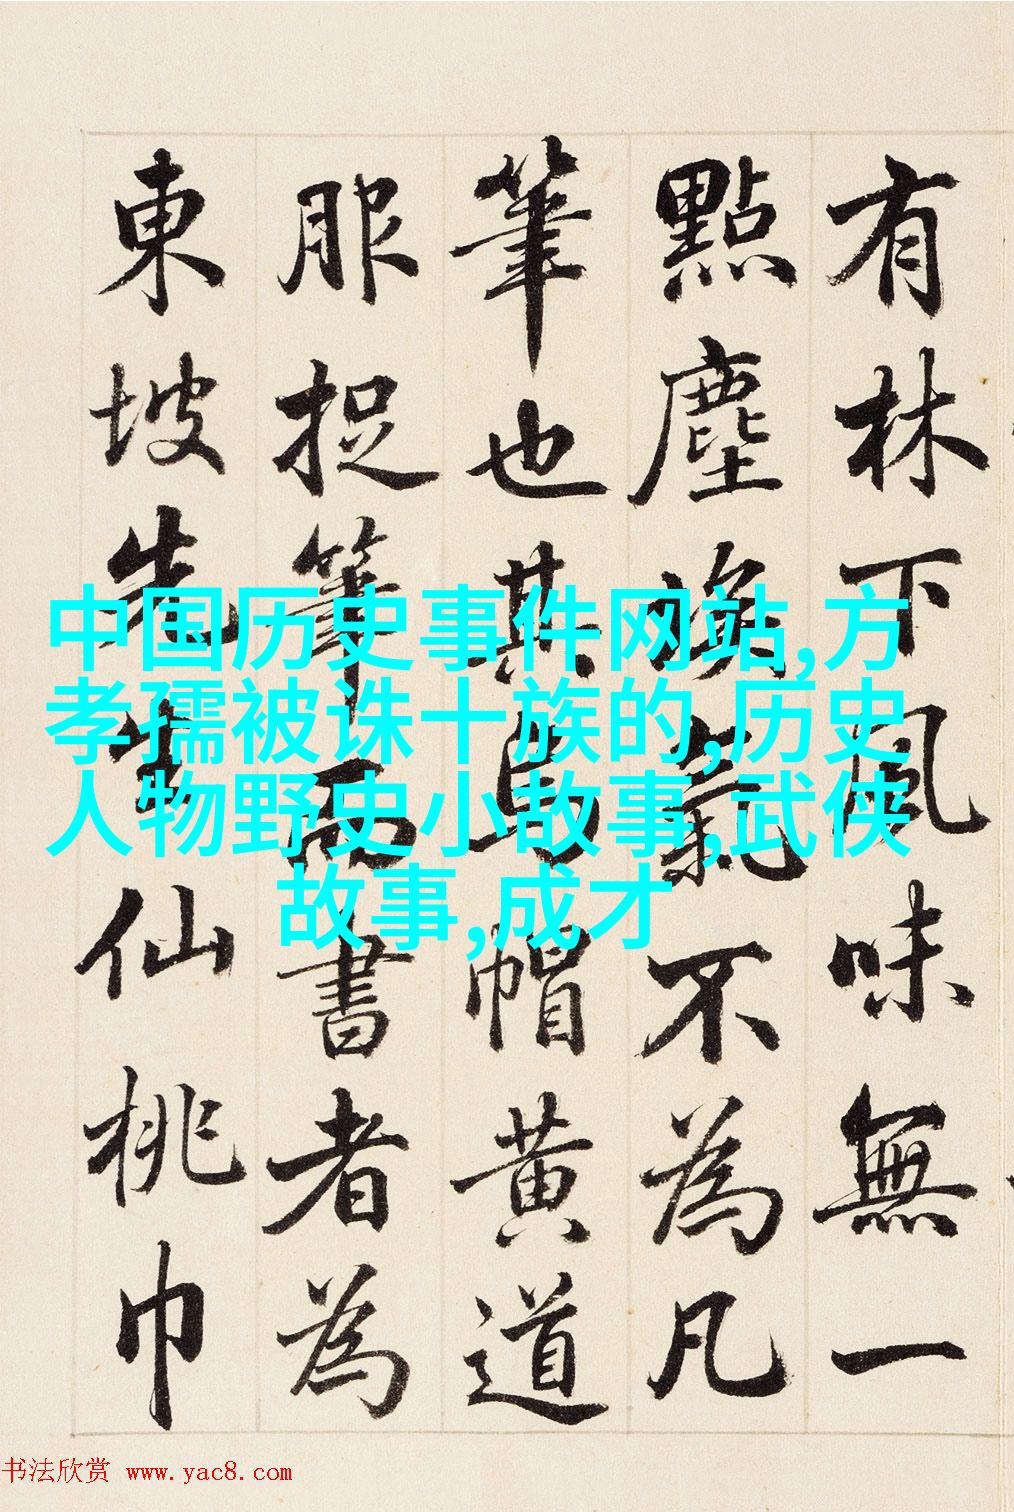 有林下風味無一
點塵埃氣不為凡
筆也其烏帽黃道
服捉筆而書者為
東坡先生仙桃巾
中国历史事件网站,方
孝孺被诛十族的,历史
人物野史小故事,武侠
故事,成才
书法欣赏 www.yac8.com